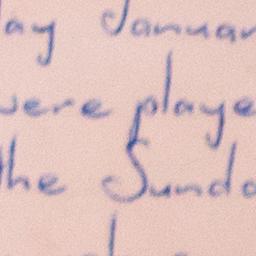 ay Januar
were playe
the Sunda